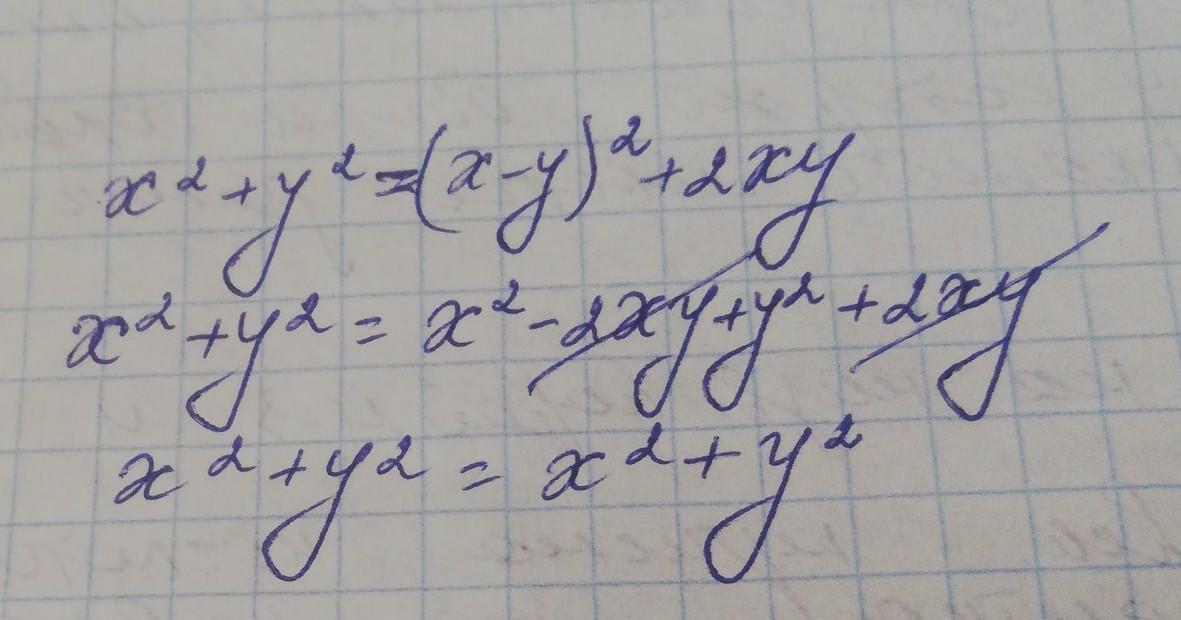 x² + y² = (x - y)² + 2xy
x² + y² = x² - 2xy + y² + 2xy
x² + y² = x² + y²